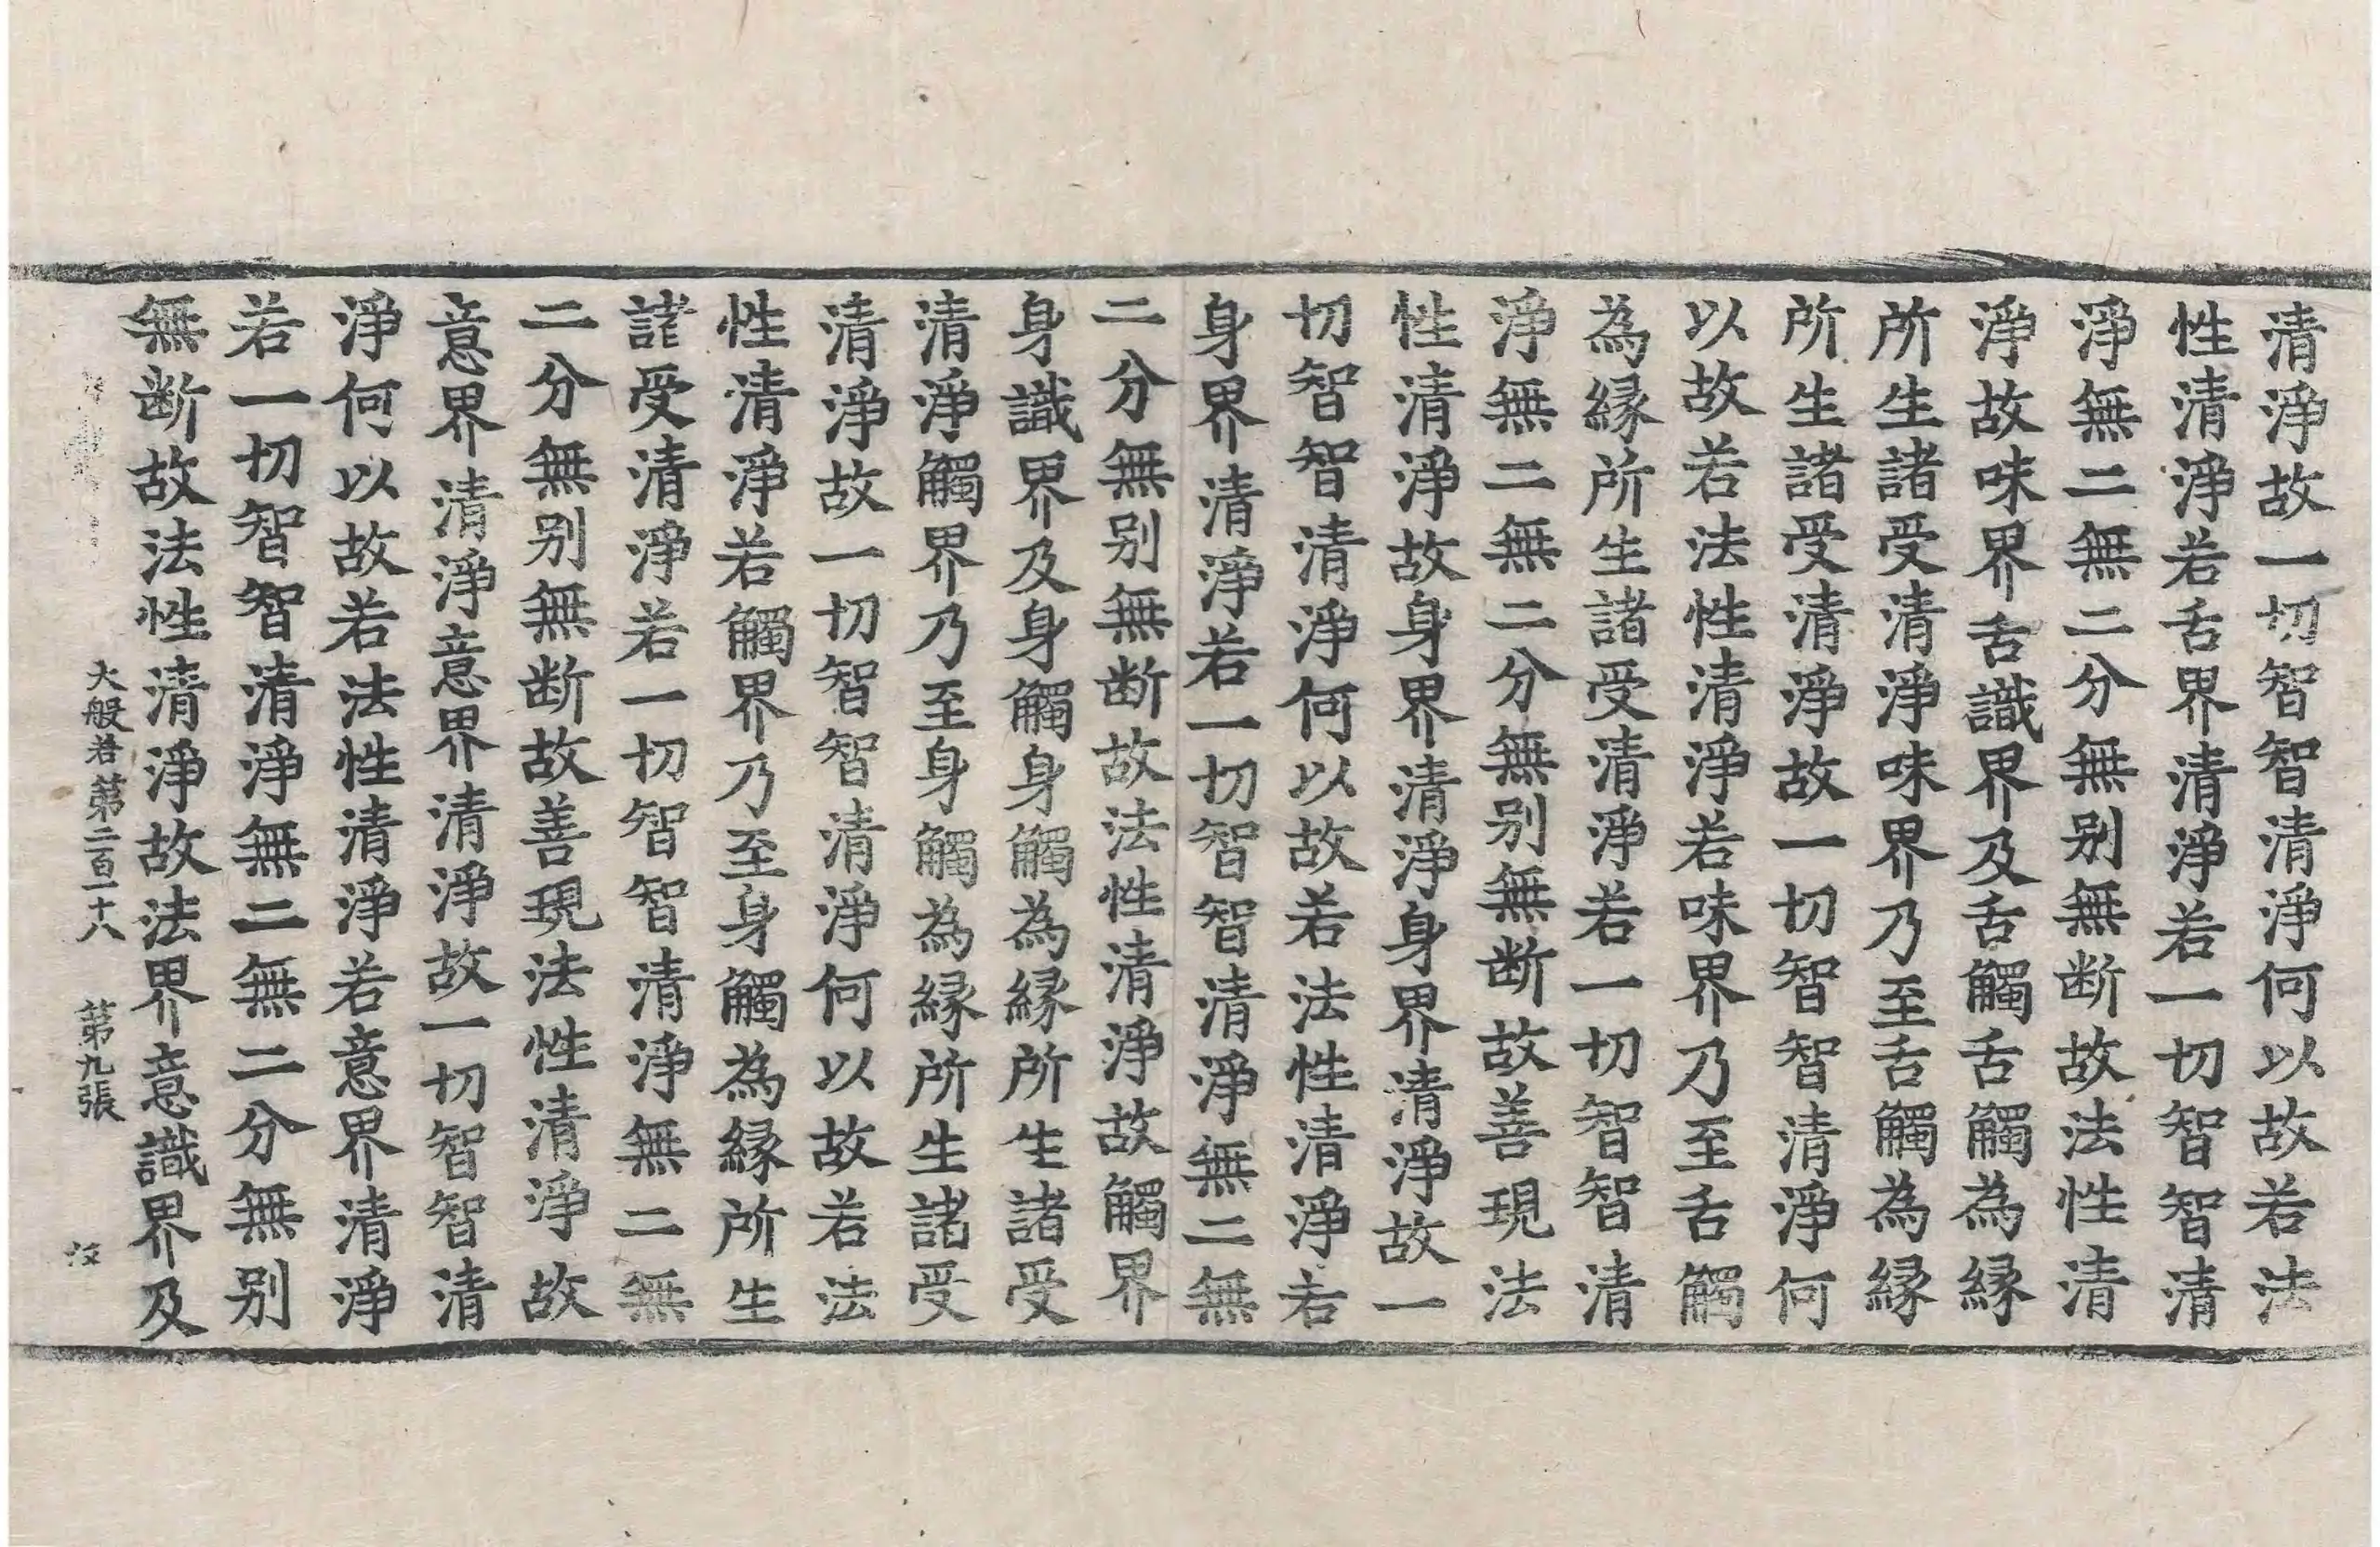 清淨故一切智智清淨何以故若法
性清淨若舌界清淨若一切智智清
淨無二無二分無别無断故法性清
淨故味界舌識界及舌觸舌觸為緣
所生諸受清淨味界乃至舌觸為緣
所生諸受清淨故一切智智清淨何
以故若法性清淨若味界乃至舌觸
為緣所生諸受清淨若一切智智清
淨無二無二分無别無断故善現法
性清淨故身界清淨身界清淨故一
切智智清淨何以故若法性清淨若
身界清淨若一切智智清淨無二無
二分無别無断故法性清淨故觸界
身識界及身觸身觸為緣所生諸受
清淨觸界乃至身觸為緣所生諸受
清淨故一切智智清淨何以故若法
性清淨若觸界乃至身觸為緣所生
諸受清淨若一切智智清淨無二無
二分無别無断故善現法性清淨故
意界清淨意界清淨故一切智智清
淨何以故若法性清淨若意界清淨
若一切智智清淨無二無二分無别
無断故法性清淨故法界意識界及
大般若第二百一十八 第九張